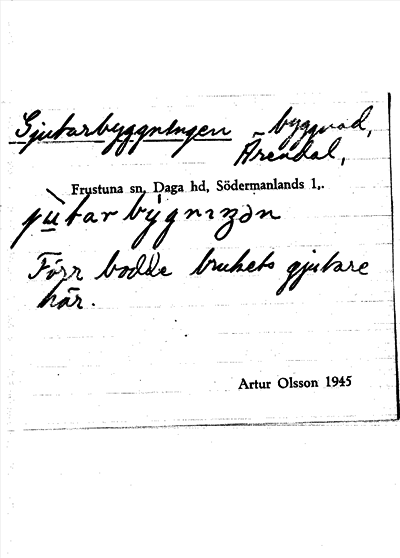 Gjutarbyggningen byggnad,
Ärendal,
Frustuna sn, Daga hd, Södermanlands l,.
jùtarbýgnıŋən
Förr bodde brukets gjutare
här.
Artur Olsson 1945